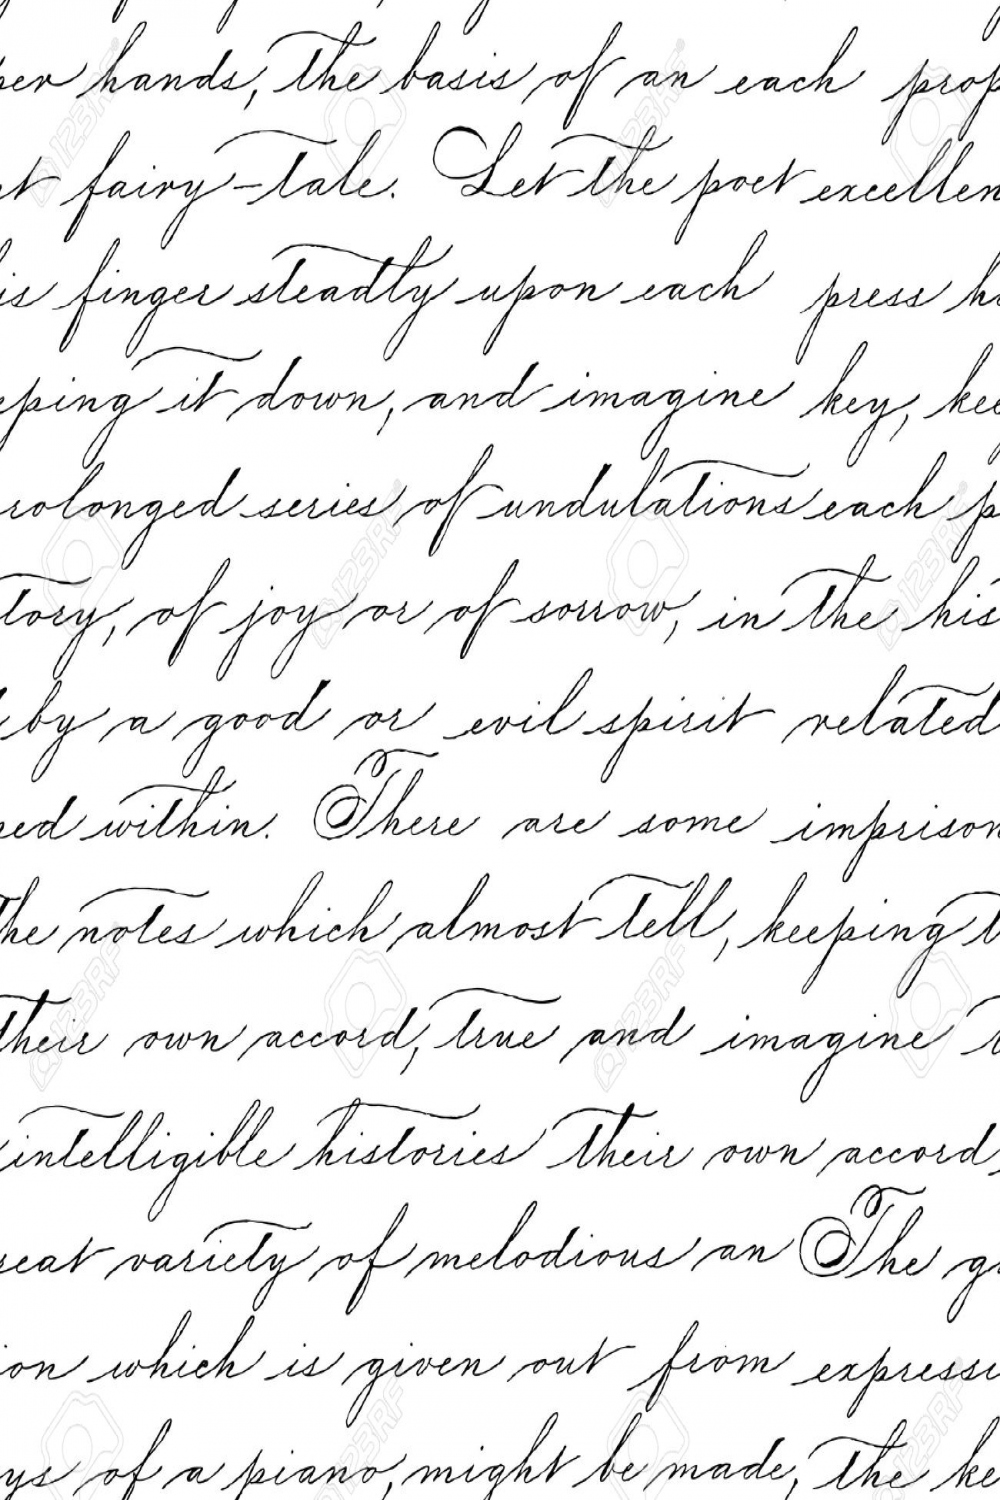 per hands, the basis of an each prop
t fairy-tale. Let the poet excellen
is finger steadly upon each press hi
eping it down, and imagine key, kee
rolonged series of undulations each p
tory, of joy or of sorrow, in the his
by a good or evil spirit related
ned within. There are some imprison
the notes which almost tell, keeping t
their own accord, true and imagine
intelligible histories their own accord,
reat variety of melodious an The g
ion which is given out from expressi
ys of a piano, might be made, the ke
123RF